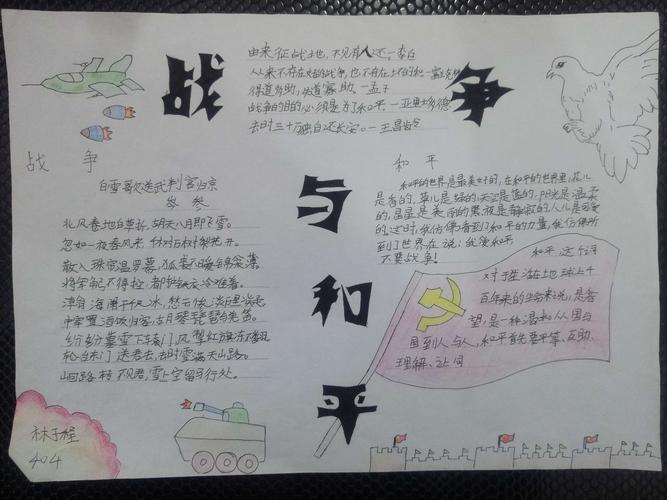 战争与和平
由来征战地，不见有人还。—李白
从来不存在好的战争，也不存在坏的和—富兰克林
得道多助，失道寡助。—孟子
战争的目的必须是为了和平—亚里斯多德
去时三十万，独自还长安。—王昌龄
战 争
白雪歌送武判官归京
岑 参
北风卷地白草折，胡天八月即飞雪。
忽如一夜春风来，千树万树梨花开。
散入珠帘湿罗幕，狐裘不暖锦衾薄。
将军角弓不得控，都护铁衣冷难着。
瀚海阑干百丈冰，愁云惨淡万里凝。
中军置酒饮归客，胡琴琵琶与羌笛。
纷纷暮雪下辕门，风掣红旗冻不翻。
轮台东门送君去，去时雪满天山路。
山回路转不见君，雪上空留马行处。
和 平
和平的世界是最美好的，在和平的世界里，花儿
是香的，草儿是绿的，天空是蓝的，阳光是温柔
的，星星是美丽的，黑夜是静寂的，人儿是可爱
的。这时，我仿佛看到了和平的力量，我仿佛听
到了世界在说：我爱和平
不要战争！
和平 这个词
对于生活在地球上千
百年来的生命来说，是希
望，是一种温和，从国与
国到人与人，和平首先要平等、互助、
理解、让同
林子程
404